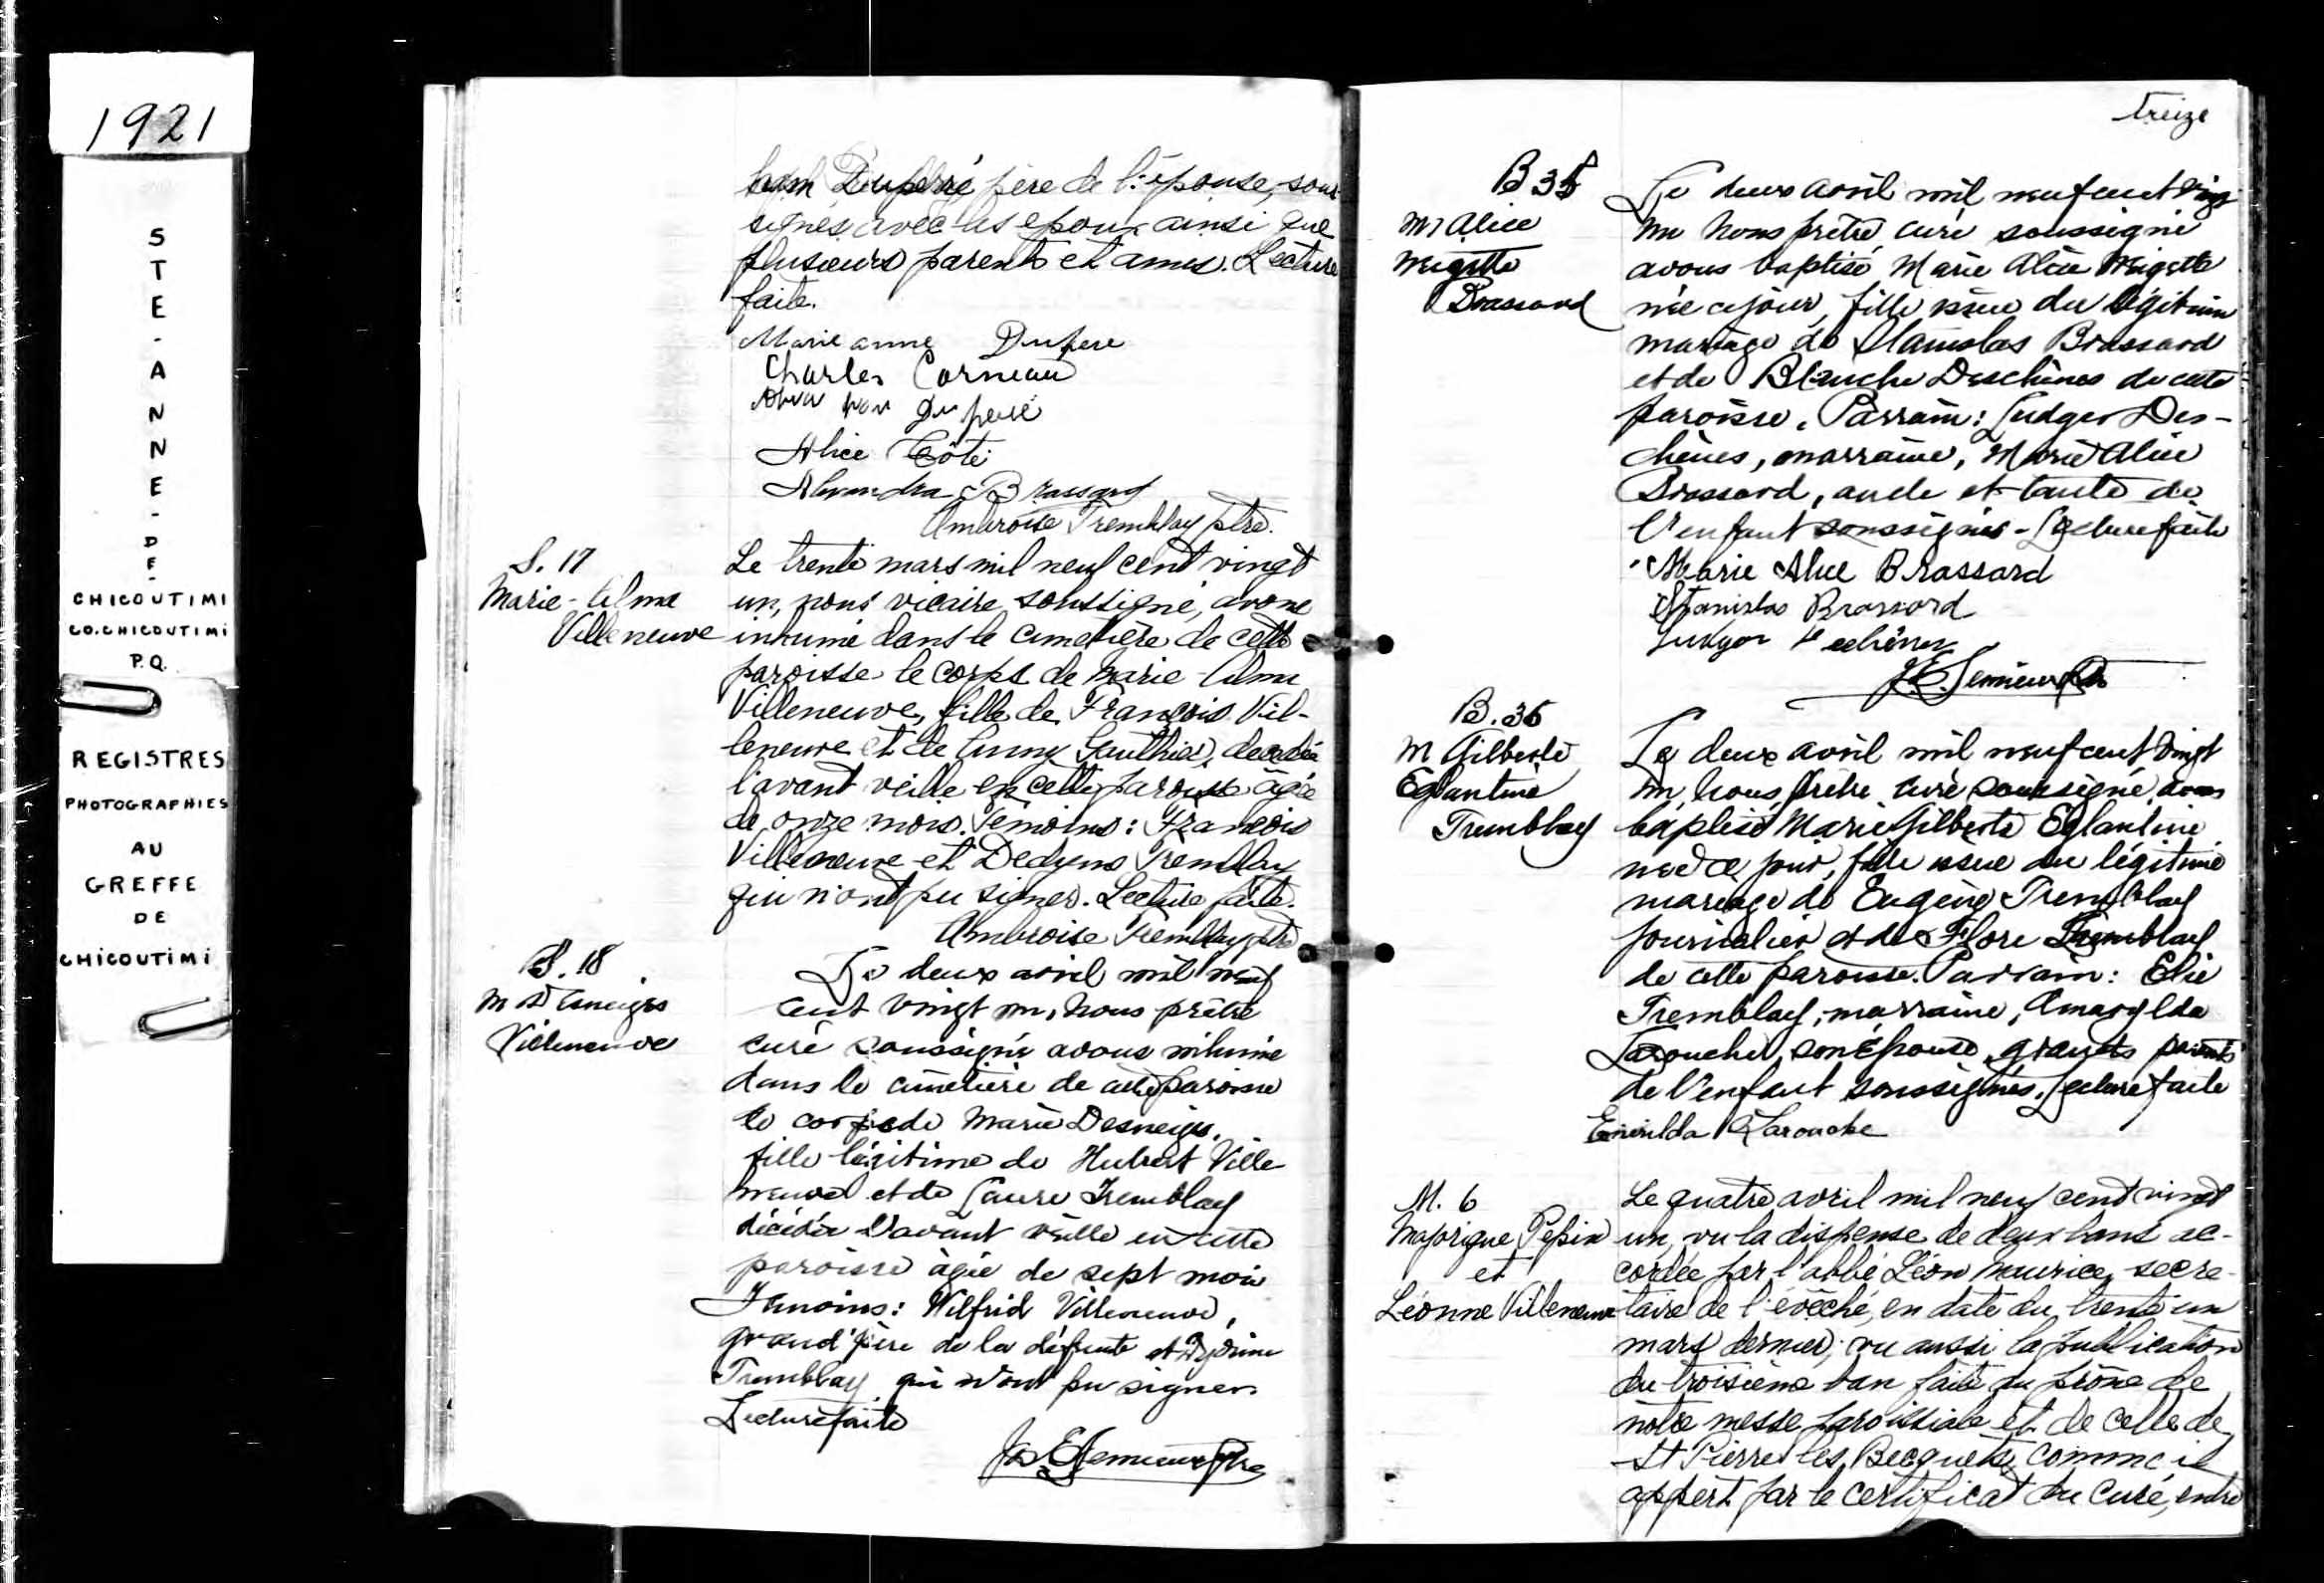 1921
STE-ANNE-DE-
CHICOUTIMI
CO. CHICOUTIMI
P.Q.
REGISTRES
PHOTOGRAPHIES
AU
GREFFE
DE
CHICOUTIMI
Duperré père de l'épouse, sous-
signés avec les époux ainsi que
plusieurs parents et amis. Lecture
faite.
Marie anne Dupere
Charles Corneau
Duperé
Alice Côté
Brassard
Ambroise Tremblay ptre.
S. 17
Marie-Alma
Villeneuve
Le trente mars mil neuf cent vingt
un, nous vicaire soussigné, avons
inhumé dans le cimetière de cette
paroisse le corps de Marie-Alma
Villeneuve, fille de François Vil-
leneuve et de Anny Gauthier, décédée
l'avant veille en cette paroisse âgée
de onze mois. Témoins: François
Villeneuve et Tremblay
qui n'ont pu signer. Lecture faite.
Ambroise Tremblay ptre
S. 18
M Desneiges
Villeneuve
Le deux avril mil neuf
cent vingt un, nous prêtre
curé soussigné avons inhumé
dans le cimetière de cette paroisse
le corps de Marie Desneiges,
fille légitime de Hubert Ville
neuve et de Laure Tremblay
décédée l'avant veille en cette
paroisse âgée de sept mois
Témoins: Wilfrid Villeneuve,
grand'père de la défunte et
Tremblay qui n'ont pu signer.
Lecture faite
treize
B 35
M Alice
Brassard
Le deux avril mil neuf cent vingt
un nous prêtre curé soussigné
avons baptisé Marie Alice
née ce jour, fille issue du légitime
mariage de Stanislas Brassard
et de Blanche Deschênes de cette
paroisse. Parrain: Ludger Des-
chênes, marraine, Marie Alice
Brassard, oncle et tante de
l'enfant soussignés - Lecture faite
Marie Alice Brassard
Stanislas Brassard
Ludger Deschênes
B. 36
M Gilberte
Eglantine
Tremblay
Le deux avril mil neuf cent vingt
un, nous prêtre curé soussigné, avons
baptisé Marie Gilberte Eglantine
née ce jour, fille issue du légitime
mariage de Eugène Tremblay
journalier et de Flore Tremblay
de cette paroisse. Parrain: Elie
Tremblay, marraine, Amarylda
Larouche, son épouse, grands parents
de l'enfant soussignés. Lecture faite
Larouche
M. 6
Majorique Pepin
et
Léonne Villeneuve
Le quatre avril mil neuf cent vingt
un, vu la dispense de deux bans ac-
cordée par l'abbé Léon Maurice, secré-
taire de l'évêché, en date du trente un
mars dernier; vu aussi la publication
du troisième ban faite au prône de
notre messe paroissiale et de celle de
St Pierre les Becquets, comme il
appert par le certificat du curé, entre